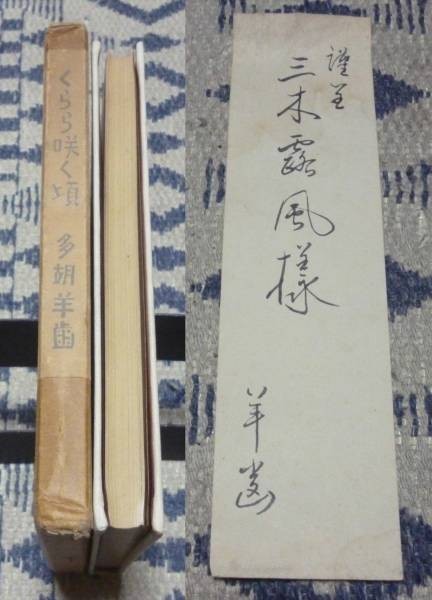 くらら咲く頃 多胡羊歯
謹呈
三木露風様
羊歯